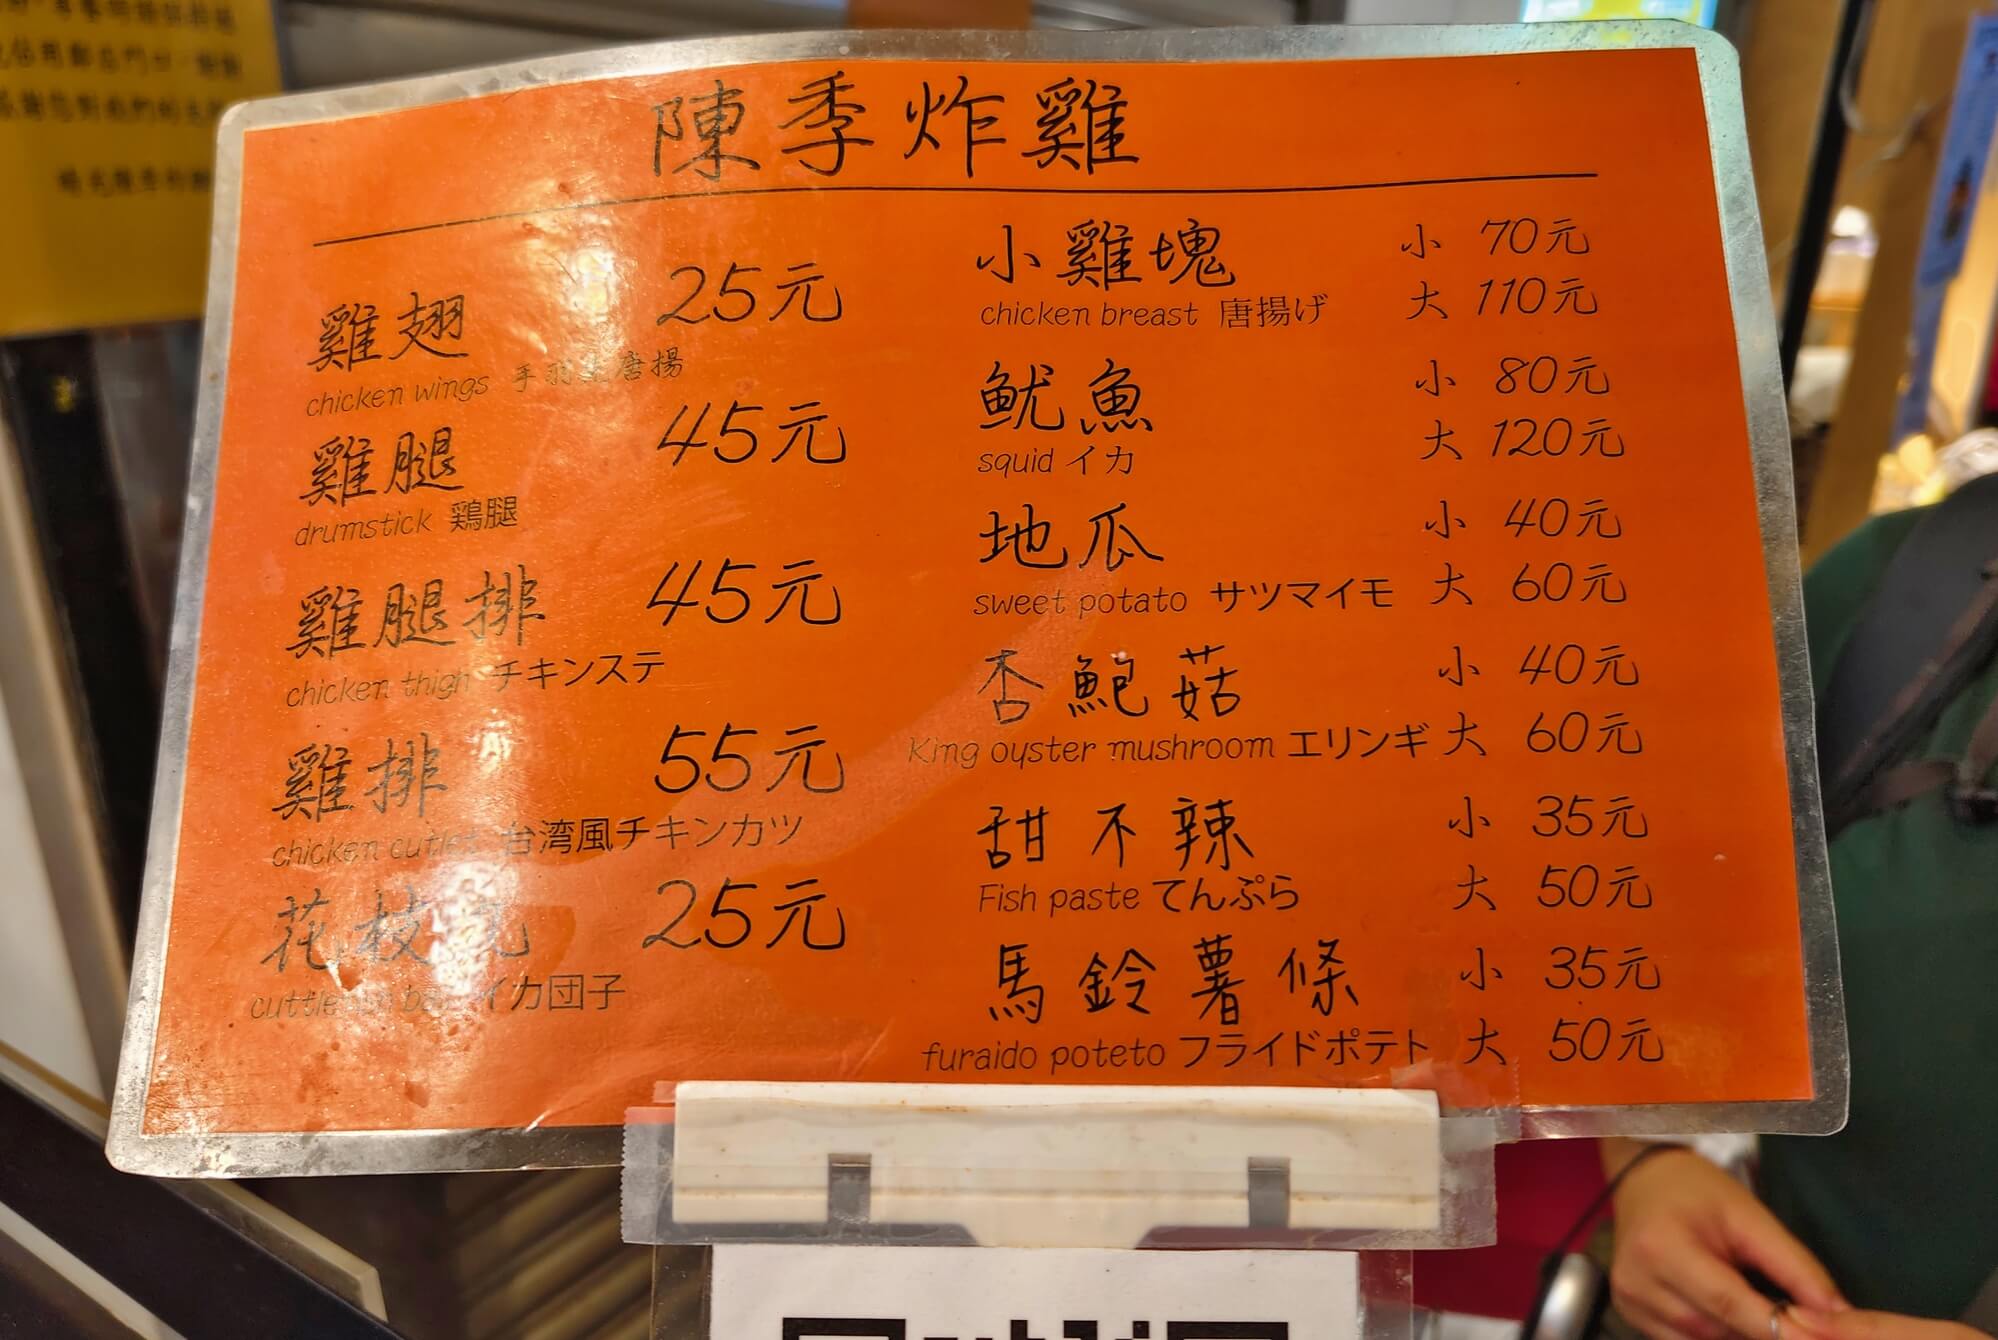 陳季炸雞
雞翅 25元
chicken wings 手羽 唐揚
雞腿 45元
drumstick 鶏腿
雞腿排 45元
chicken thigh チキンステ
雞排 55元
chicken cutlet 台湾風チキンカツ
花枝丸 25元
イカ団子
小雞塊 小 70元
chicken breast 唐揚げ 大 110元
魷魚 小 80元
squid イカ 大 120元
地瓜 小 40元
sweet potato サツマイモ 大 60元
杏鮑菇 小 40元
King oyster mushroom エリンギ 大 60元
甜不辣 小 35元
Fish paste てんぷら 大 50元
馬鈴薯條 小 35元
furaido poteto フライドポテト 大 50元